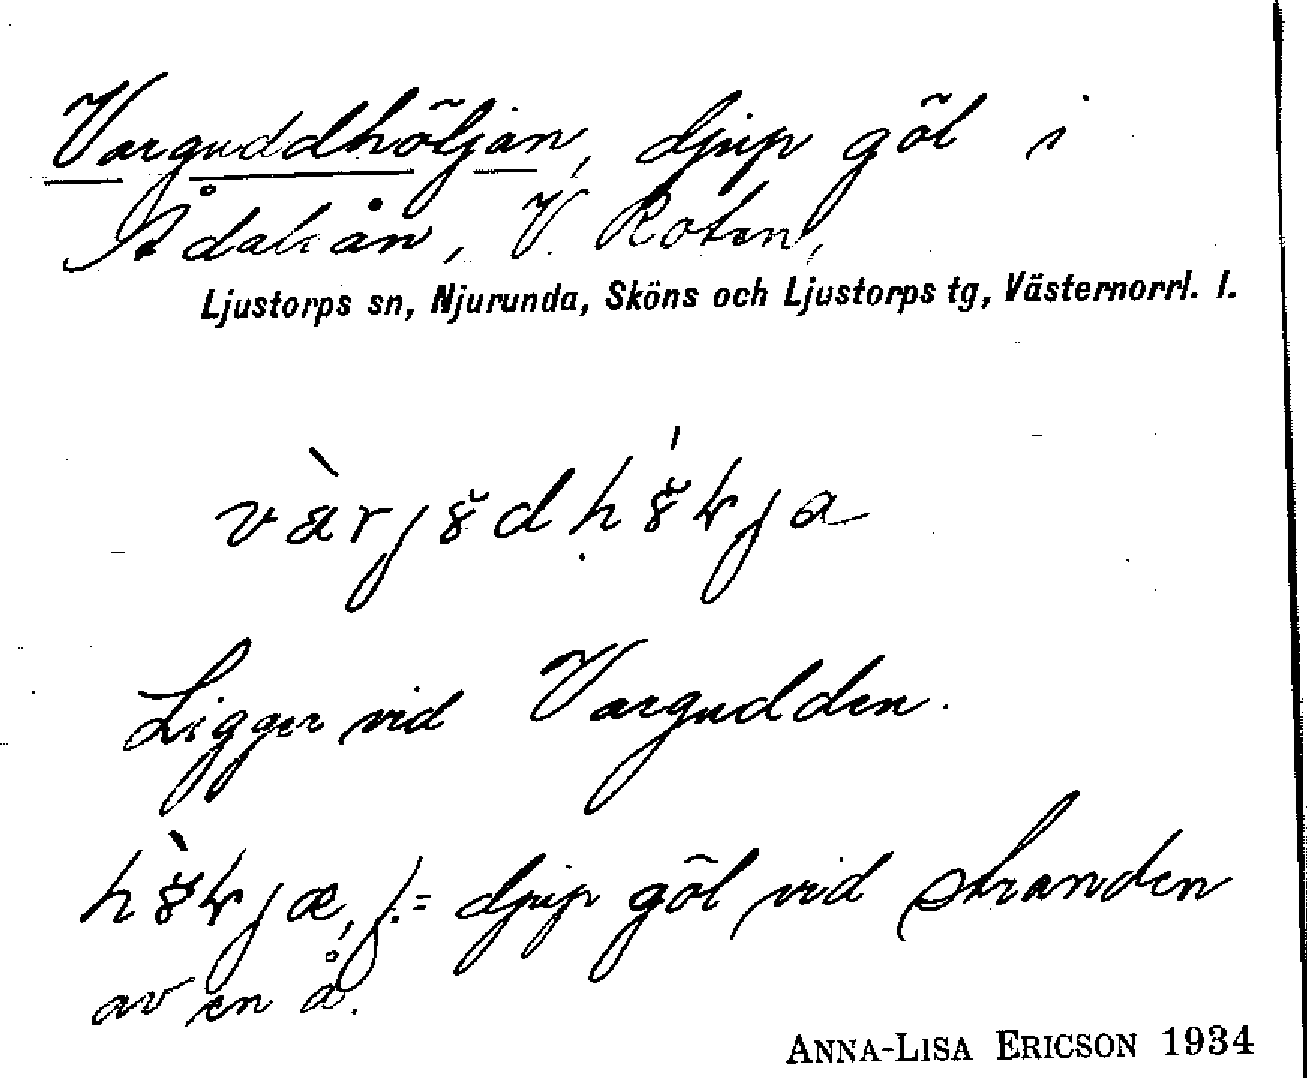 Varguddhöljan, djup göl i
Ådalsån, V. Roten,
Ljustorps sn, Njurunda, Sköns och Ljustorps tg, Västernorrl. l.
Ligger vid Vargudden.
f. = djup göl vid stranden
av en å.
ANNA-LISA ERICSON 1934